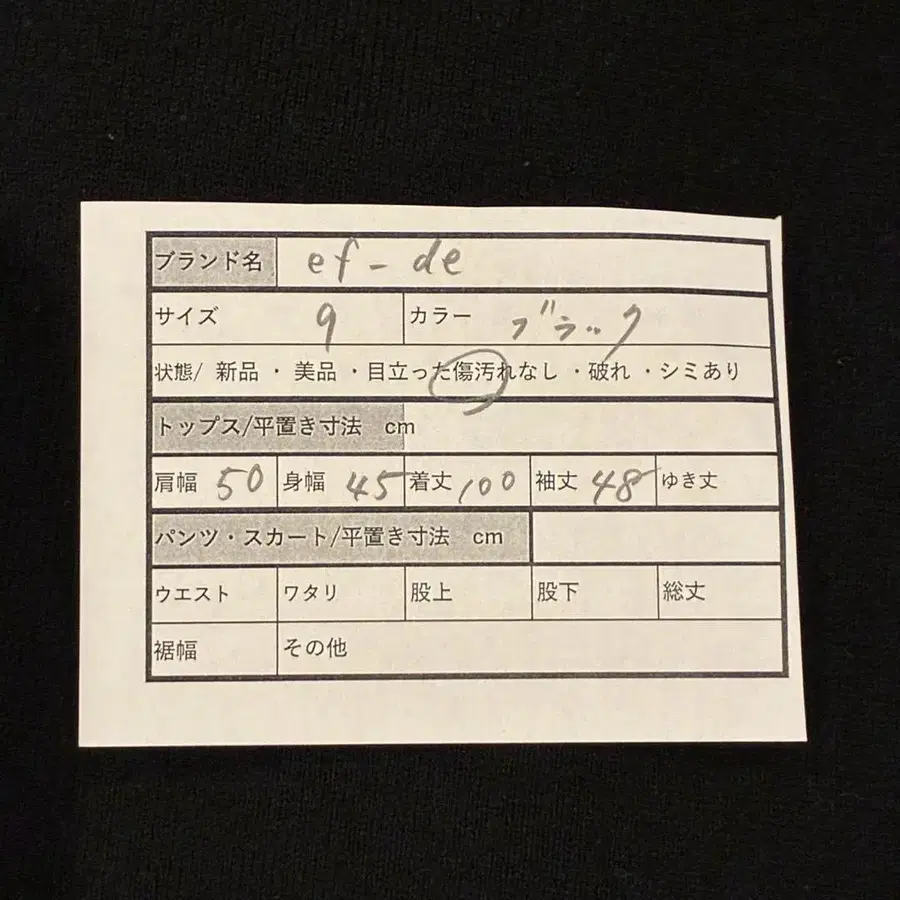 ブランド名 ef-de
サイズ 9 カラー ブラック
状態/ 新品 ・ 美品 ・目立った傷汚れなし ・破れ ・シミあり
トップス/平置き寸法 cm
肩幅 50 身幅 45 着丈 100 袖丈 48 ゆき丈
パンツ・スカート/平置き寸法 cm
ウエスト ワタリ 股上 股下 総丈
裾幅 その他